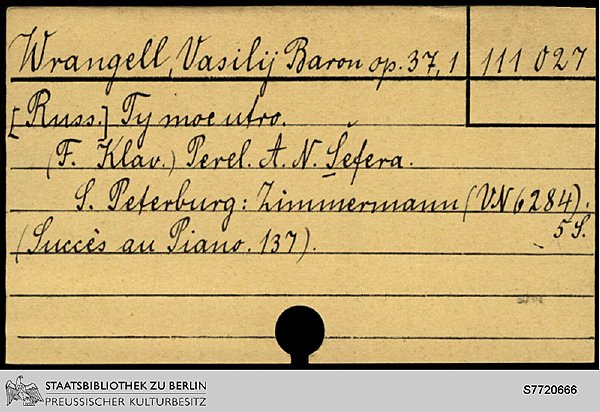 Wrangell, Vasilij Baron op. 37, 1 111 027
[Russ.] Ty moe utro.
(F. Klav.) Perel. A. N. Šéfera.
S. Peterburg: Zimmermann (VN 6284).
5 S.
(Succès au Piano. 137).
STAATSBIBLIOTHEK ZU BERLIN
PREUSSISCHER KULTURBESITZ
S7720666